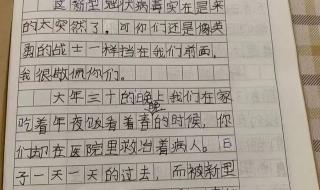 这新型冠状病毒实在是来
的太突然了，可你们还是像英
勇的战士一样挡在我们前面，
我很敬佩你们。
大年三十的晚上我们在家
吃着年夜饭看着春晚的时候，你
们却在医院里救治着病人。日
子一天一天的过去，而被新型